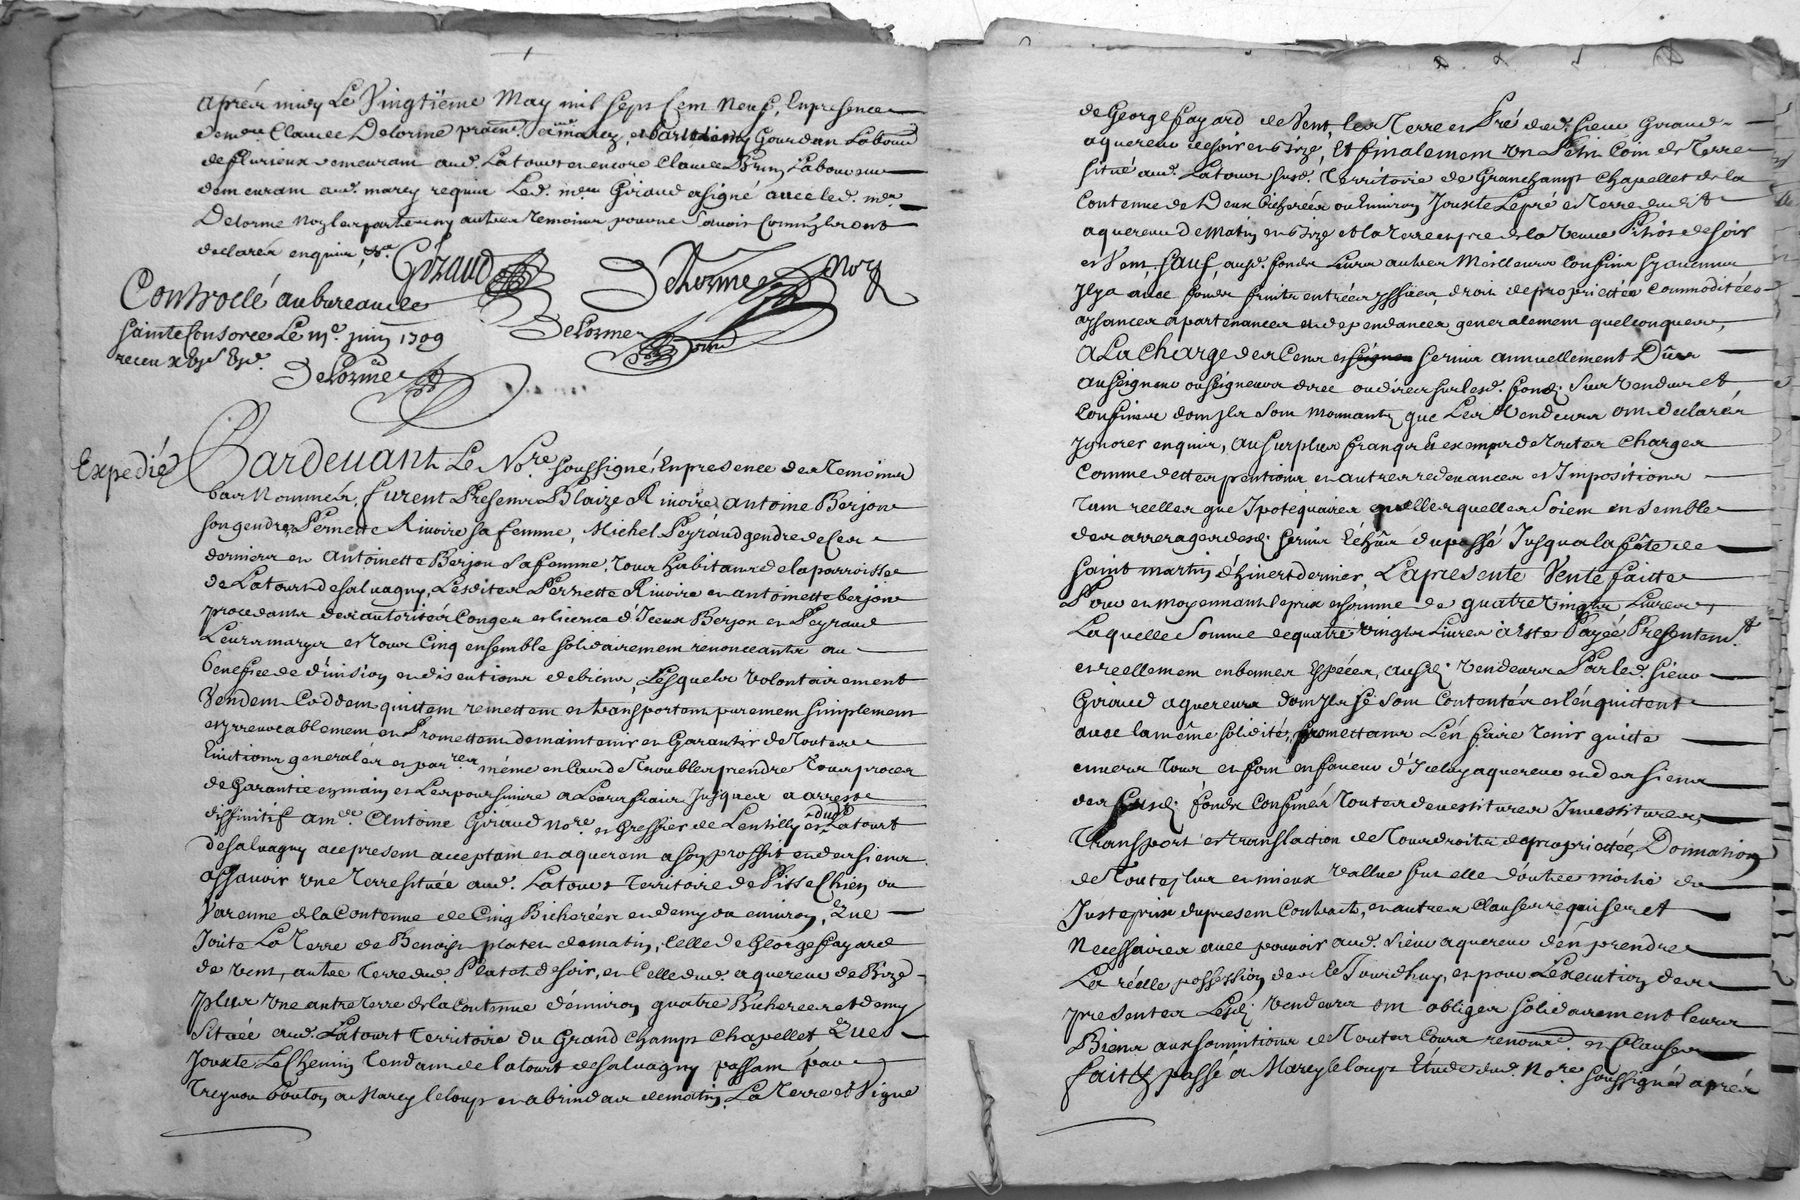 aprés midy Le Vingtième May mil sept Cent Neuf, En presence
de me Claude Delorme pratn. a marcy, et Gourdan Labour
de fleurieux demeurant aud. Latour et encore Claude Brun Laboureur
demeurant aud. marcy requis Led. me Giraud a signé avec led. me
Delorme No les parties ny autres temoins pour ne Savoir Comm'ils ont
declarés enquis
Giraud Delorme Noy
Controllé au bureau de
Sainte Consorce Le me juin 1709
receu
Delorme
Delorme
Expedié
Pardevant Le Nore soussigné, En presence des temoins
bas Nommés, furent Presens Blaize Rivoire Antoine Berjon
son gendre, Pernette Rivoire sa femme, Michel Peyraud gendre de Ces
derniers et Antoinette Berjon Sa femme, tous habitans de la parroisse
de Latour de salvagny, Lesdites Pernette Rivoire et antoinette berjon
procedants des autorités Conges et licence d'Iceux Berjon et Peyraud
Leurs marys et tous Cinq ensemble solidairement renonceants au
benefice de division et discutions de biens, Lesquels volontairement
Vendent Ceddent quittent remettent et transportent purement simplement
et yrrevocablement et Promettent de maintenir et Garantir de toutes
Evictions generalés et parres même en Cas de troubles prendre tous proces
de Garantie en main et Les poursuivre a Leurs fraix Jusques a arrest
diffinitif a me Antoine Giraud nore et Greffier de Lentilly et dud Latour
de salvagny acepresent acceptant et aquerant a son proffit et des siens
assavoir Une terre située aud. Latour territoire de Pisse Chien ou
Varenne de la Contenue de Cinq Bicherées et demy ou environ, Que
Joute La terre de Benoist platet de matin, Celle de George fayard
de vent, autre terre dud. Platet de soir, et Celle dud. aquereur de Bize
plus une autre terre de la Contenue d'environ quatre Bicherees et demy
Située aud. Latour territoire du Grand Champs Chapellet Que
Jouxte Le Chemin tendant de latour de salvagny passant par
bouton a Marcy le loup de matin, La Terre et Vigne
de George fayard de Vent, les terre et Pré dud. Sieur Giraud
aquereur de soir et bize, Et finalement un Petit Coin de Terre
situé aud. Latour susd. territoire de Granchamps Chapellet de la
Contenue de Deux bicherées ou Environ Jouxte Le pré et terre dudit
aquereur de Matin et bize et la terre et pré de la veuve de soir
et Vent, Sauf, ausd. fonds Leurs autres Meilleurs Confins
Il y a avec fonds fruits entrées yssues, droit de proprietée Commoditées
aysances apartenances et dependances generalement quelconques,
A La Charge des Cens et Servis annuellement Dûs
au seigneur ou seigneurs direc ou direcs sur lesd. fonds Sus vendus et
Confinés dont jls Sont mouvants que Les vendeurs ont declarés
Jgnorer enquis, au surplus franqs et exempts de toutes Charges
Comme dettes pentions et autres redevances et Impositions
tant reelles que Ipotéquaires quelles quelles Soient ensemble
des arrerages desd. servis Echûs du passé Jusqua la fête de
saint martin d'hivert dernier, La presente Vente faitte
Pour et moyennant le prix et somme de quatre vingts Livres,
Laquelle Somme de quatre vingts Livres a été Payée Presentemt
et reellement en bonnes Espéces, ausd. vendeurs Par led. Sieur
Giraud aquereur dont jls se sont Contentés et l'en quittent
avec la même solidité, promettans L'en faire tenir quitte
envers tous et font en faveur d'Iceluy aquereur et des siens
des susd. fonds Confinés toutes devestitures Investitures
transport et translaction de tous droits de proprietée, Donnation
de toute plus et mieux vallue fut elle d'outre moitié du
Juste prix du present Contract, et autres Clauses requises et
Necessaires avec pouvoir aud. Sieur aquereur d'en prendre
La réelle possession des Ce Jourd'huy, et pour L'execution des
presentes Lesd. vendeurs ont obligez solidairement leurs
Biens aux soumitions de toutes Cours renond. et Clauses
fait & passé a Marcy le loup Etude dud. nore soussigné aprés